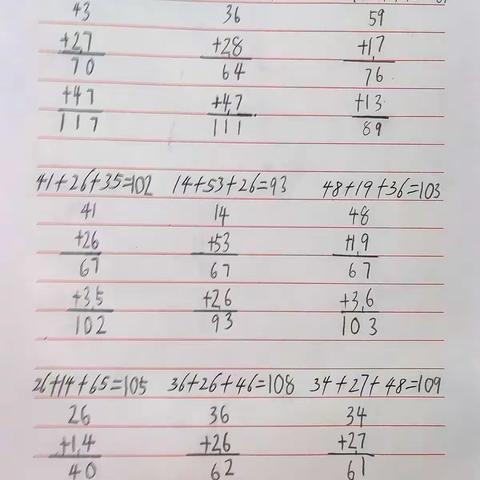 43 36 59
+27 +28 +17
70 64 76
+47 +47 +13
117 111 89
41+26+35=102 14+53+26=93 48+19+36=103
41 14 48
+26 +53 +19
67 67 67
+35 +26 +36
102 93 103
26+14+65=105 36+26+46=108 34+27+48=109
26 36 34
+14 +26 +27
40 62 61